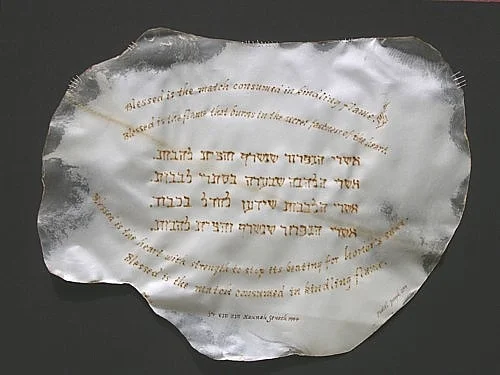 Blessed is the match consumed in kindling flame.
Blessed is the flame that burns in the secret fastness of the heart.
אשרי הגפרור שנשרף והצית להבות.
אשרי הלהבה שבערה בסתרי לבבות.
אשרי הלבבות שידעו לחדול בכבוד.
אשרי הגפרור שנשרף והצית להבות.
Blessed is the heart with strength to stop its beating for honor's sake.
Blessed is the match consumed in kindling flame.
Hannah Senesh 1944